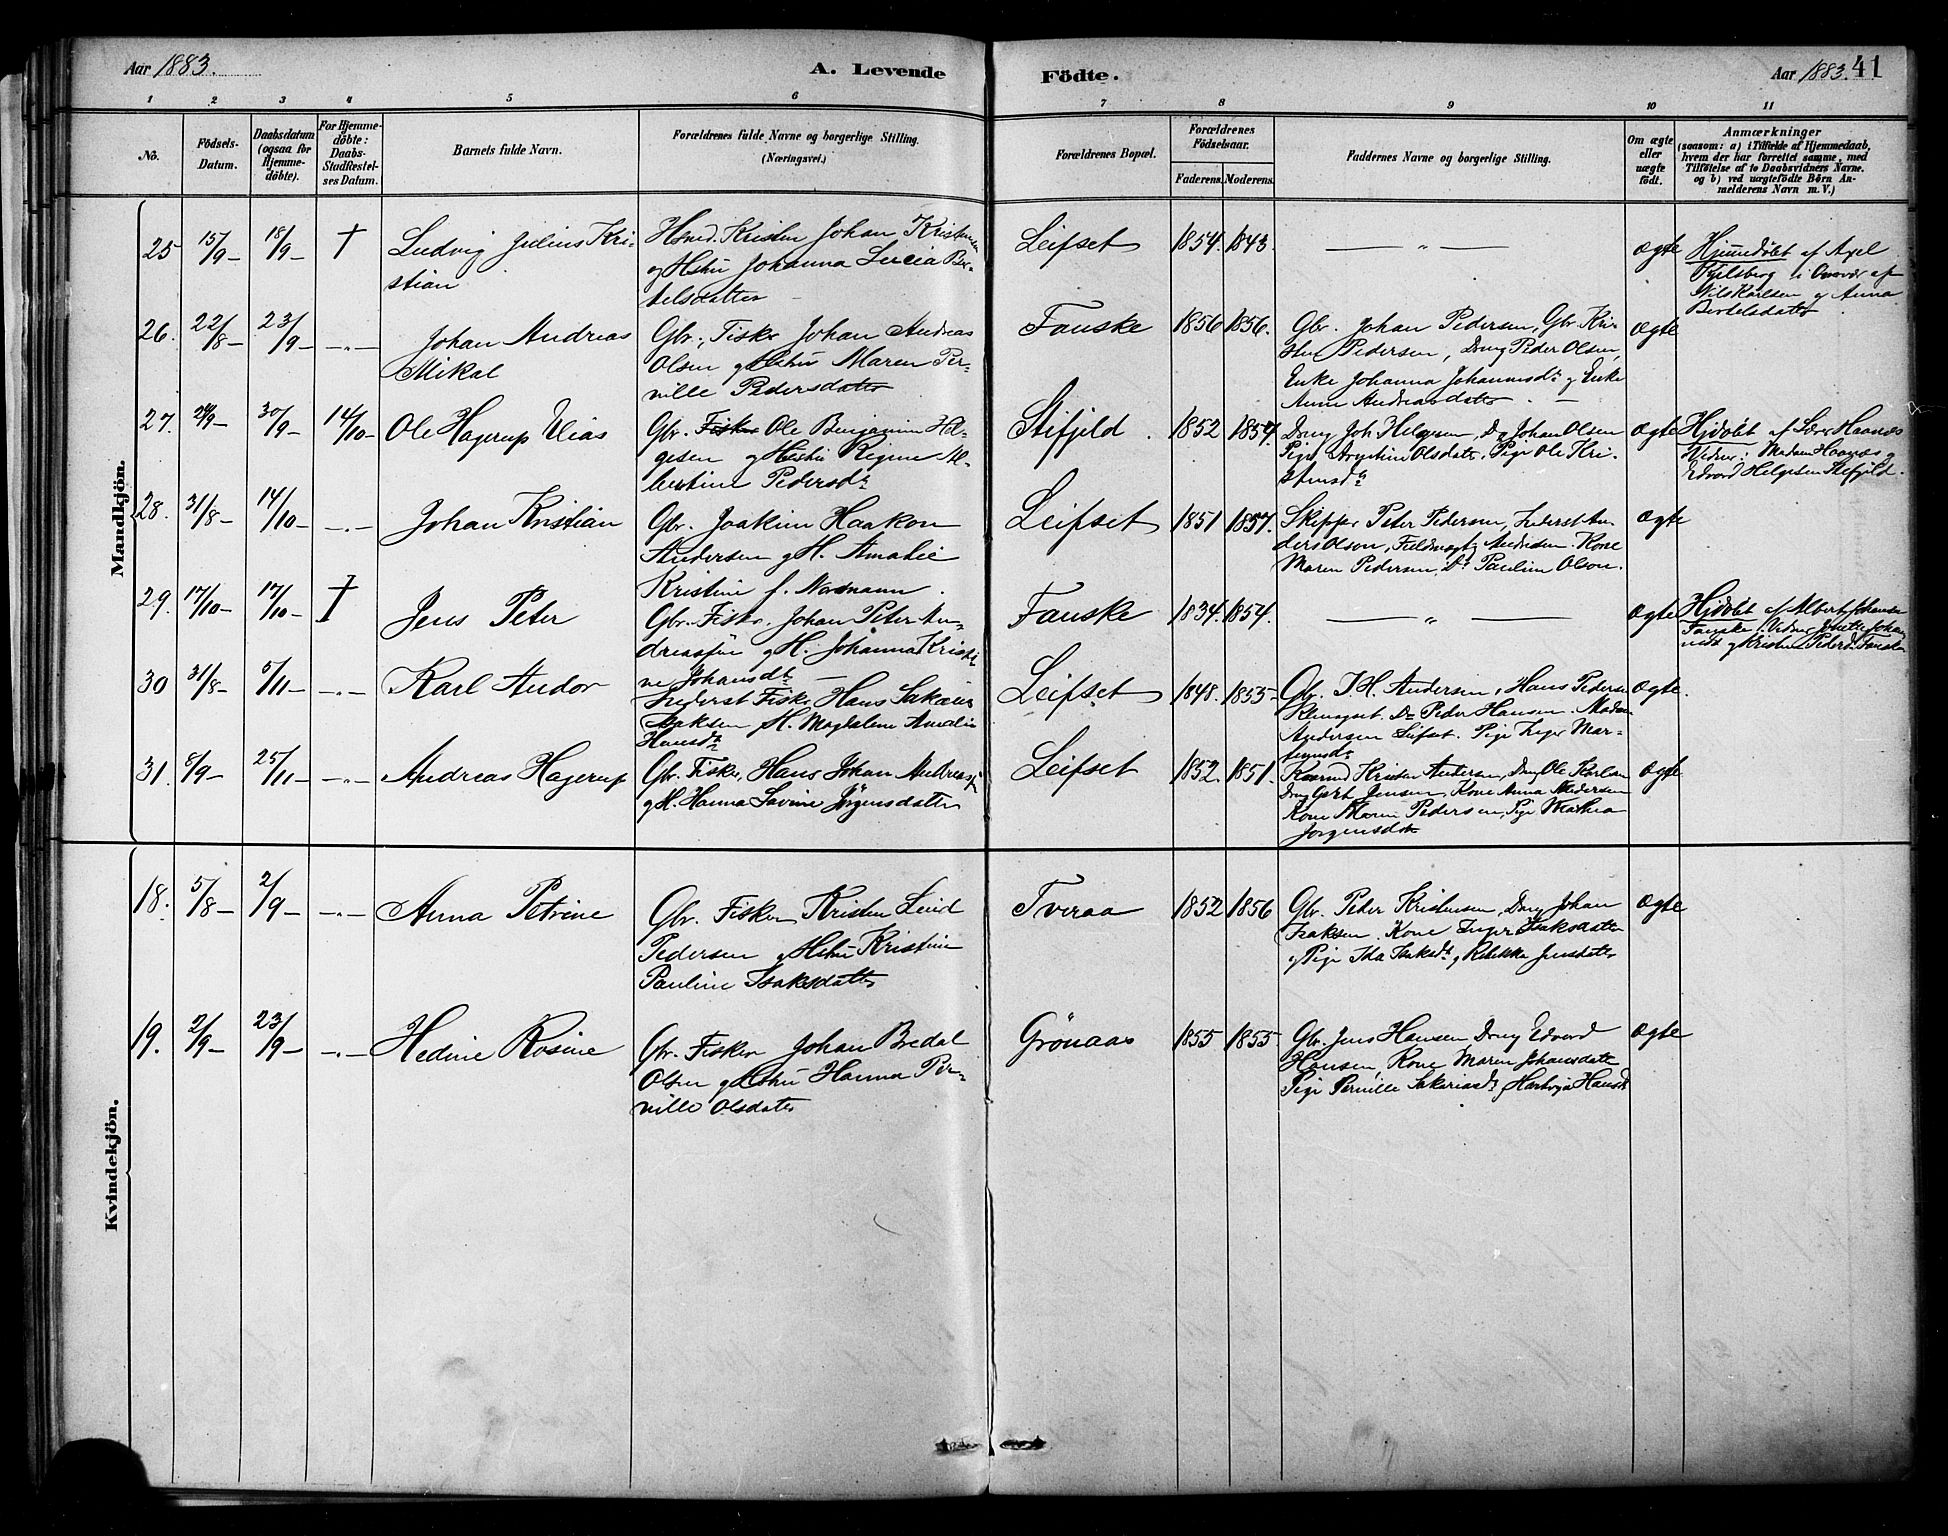 Aar 1883.
A. Levende
Födte.
Aar 1883. 41
1 2 3 4 5 6 7 8 9 10 11
No.
Födsels-
Datum.
Daabsdatum
(ogsaa for
Hjemme-
döbte).
For Hjemme-
döbte:
Daabs-
Stadfæstel-
ses Datum.
Barnets fulde Navn.
Forældrenes fulde Navne og borgerlige Stilling.
(Næringsvei.)
Forældrenes Bopæl.
Forældrenes
Födselsaar.
Faderens. Moderens.
Faddernes Navne og borgerlige Stilling.
Om ægte
eller
uægte
födt.
Anmærkninger
(saasom: a) i Tilfælde af Hjemmedaab,
hvem der har forrettet samme, med
Tilföielse af to Daabsvidners Navne,
og b) ved uægtefödte Börn An-
melderens Navn m. V.)
Mandkjön.
25 15/9- 18/9- † Ludvig Julius Kri-
stian
Hsmd. Kristen Johan Kristensen
og Hstru Johanna Lucia Ber-
telsdatter
Leifset 1854. 1843. — „ — ægte
Hjemmedöbt af Axel
i af
Nils Karlsen og Anna
Bertelsdatter
26. 22/8- 23/9- -„- Johan Andreas
Mikal
Gbr. Fisker Johan Andreas
Olsen og Hstru Maren Per-
nille Pedersdatter
Fauske 1856 1856.
Gbr. Johan Pedersen, Gbr. Kri-
sten Pedersen, Dreng Peder Olsen,
Enke Johanna Johannesdr og Enke
Anne Andreasdatter. —
ægte
27. 29/9- 30/9- 14/10- Ole Hagerup Elias
Gbr. Fisker Ole Benjamin Hel-
gesen og Hstru Regine Al-
bertine Pedersdr
Stifjeld. 1852 1857.
Dreng Joh. Helgesen, Dg Johan Olsen
Pige Olsdatter, Pige Ole Kri-
stensdr
ægte
Hjdöbt af Lærer Haanæs
Vidner: Madam Haanæs og
Edvard Helgesen Stifjeld.
28. 31/8- 14/10- -„- Johan Kristian
Gbr. Joakim Haakon
Andersen og H. Amalie
Kristine f. Normann.
Leifset 1851 1857.
Skipper Peter Pedersen, Inderst An-
ders Olson, Andersen Kone
Maren Pedersen, Do Pauline Olson.
ægte
29. 17/10- 17/10- † Jens Peter
Gbr. Fisker Johan Peter An-
dreassen og H. Johanna Kristi-
ne Johansdr —
Fauske 1834. 1854. — „ — ægte
Hjdöbt af Albert Johansen
Fauske. Vidner Johan-
og Kristen Pedersdr Fauske
30 31/8- 5/11- -„- Karl Andor
Inderst Fisker Hans Sakarias
Isaksen og H. Magdalena Amalia
Hansdr
Leifset 1848. 1853-
Gbr. J. H. Andersen, Hans Pedersen
Klungset. Do Peder Hansen. Madam
Andersen Leifset. Pige Inger Mar-
tensdr
ægte.
31. 8/9- 25/11- -„- Andreas Hagerup
Gbr. Fisker, Hans Johan Andreass.
og H. Hanna Lavine Jörgensdatter
Leifset 1852. 1851.
Kristen Andersen, Dreng Ole Karlsen
Dreng Gert Jensen, Kone Anna Andersen
Kone Maren Pedersen, Pige Mathea
Jörgensdatter
ægte
Kvindekjön.
18. 5/8- 2/9- -„- Anna Petrine
Gbr. Fisker Kristen Leid
Pedersen og Hstru Kristine
Pauline Isaksdatter
Tveraa 1852 1856
Gbr. Peter Kristensen, Dreng Johan
Isaksen. Kone Inger Isaksdatter
og Pige Ida Isaksdr og Rebekka Jensdatter
ægte
19. 2/9- 23/9- -„- Hedine Rosine
Gbr. Fisker Johan Bredal
Olsen og Hstru Hanna Per-
nille Olsdatter
Grönaas 1855 1855
Gbr. Jens Hansen, Dreng Edvard
Hansen, Kone Maren Johansdatter
Pige Pernille Sakariasdr og Hansdr
ægte